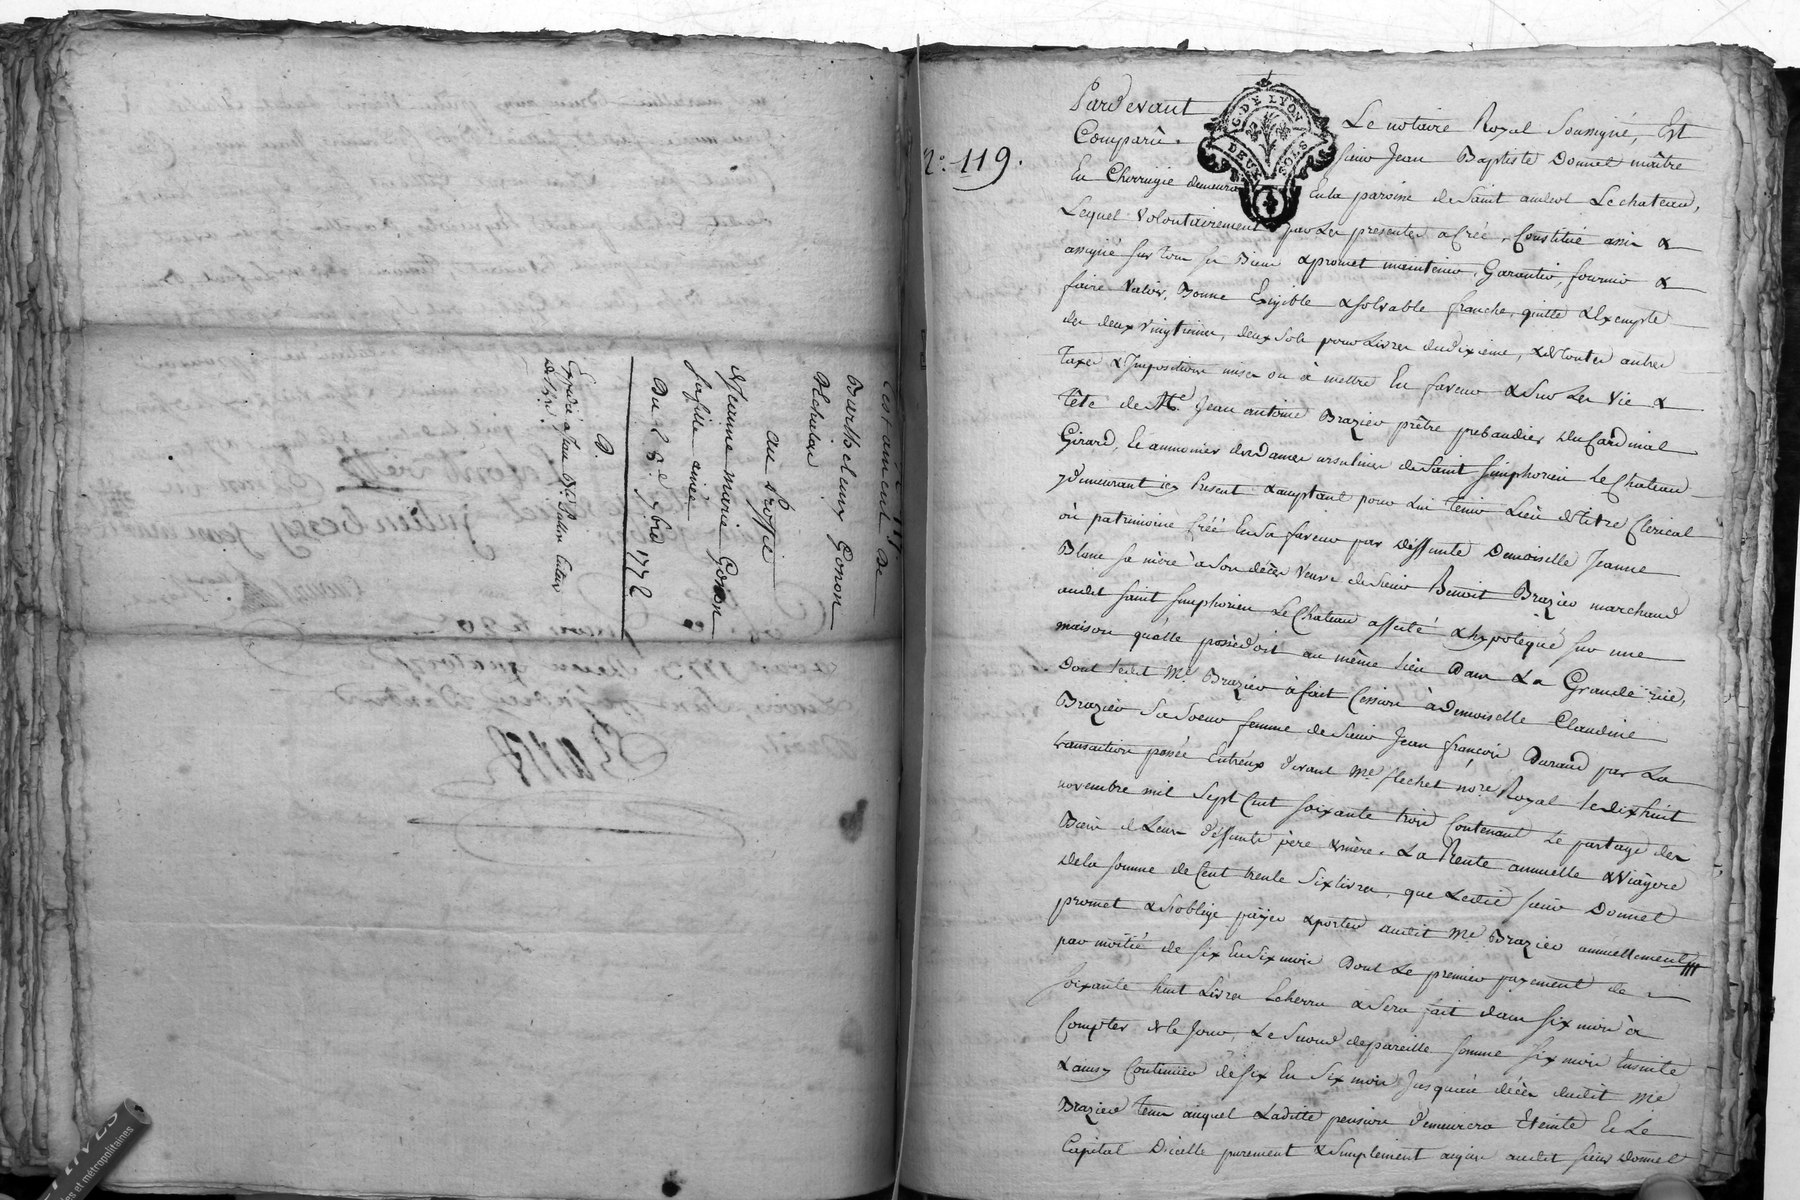 Testament De
Barthelemy Gonon
Au Proffit
De Jeanne marie Gonon
sa fille ainée
Du 23e xbre 1772
Expedié a Jean Bte
N.o 119.
G. DE LYON
DEUX SOLS
Pardevant Le notaire Royal Soussigné, Est
Comparû. sieur Jean Baptiste Donnet maître
En Chirurgie demeurant En la paroisse de Saint andeol Le chateau,
Lequel Volontairement par Les presentes a Créé, Constitué assis &
assigné sur tous ses Biens & promet maintenir, Garantir, fournir &
faire Valoir, Bonne Exigible & solvable franche, quitte & Exempte
des deux vingtiemes, deux sols pour Livres du dixieme, & de toutes autres
Taxes & Impositions mises ou à mettre En faveur & Sur Les Vie &
Tête de Me. Jean antoine Brazier prêtre prebandier du Cardinal
Girard, & aumonier des dames ursulines de Saint Simphorien Le Chateau
y demeurant icy Present & acceptant pour Lui tenir Lieu de titre Clerical
où patrimoine Créé En Sa faveur par deffunte Demoiselle Jeanne
Blanc sa mère à son décès Veuve de Sieur Benoit Brazier marchand
audit Saint Simphorien Le Chateau affecté & hypotequé sur une
maison qu'elle possedoit au même Lieu dans La Grande rüe,
Dont ledit Me. Brazier à fait Cession à demoiselle Claudine
Brazier Sa Soeur femme de Sieur Jean françois Durand par La
transaction passée Entr'eux devant Me. flechet nore. Royal le dix huit
novembre mil Sept Cent soixante trois Contenant Le partage des
Biens de Leurs deffunts père & mère. La Rente annuelle & Viagere
de la somme de Cent trente Six livres, que Ledit sieur Donnet
promet & s'oblige payer & porter audit Me. Brazier annuellement
par moitié de six En Six mois Dont Le premier payement de
soixante huit Livres Echerra & Sera fait dans six mois à
Compter de Ce Jour, Le Second de pareille somme six mois Ensuite
& ainsy Continüer de six En Six mois Jusqu'au décès dudit Me
Brazier tems auquel Laditte pension demeurera Eteinte & Le
Capital D'icelle purement & Simplement acquis audit sieur Donnet